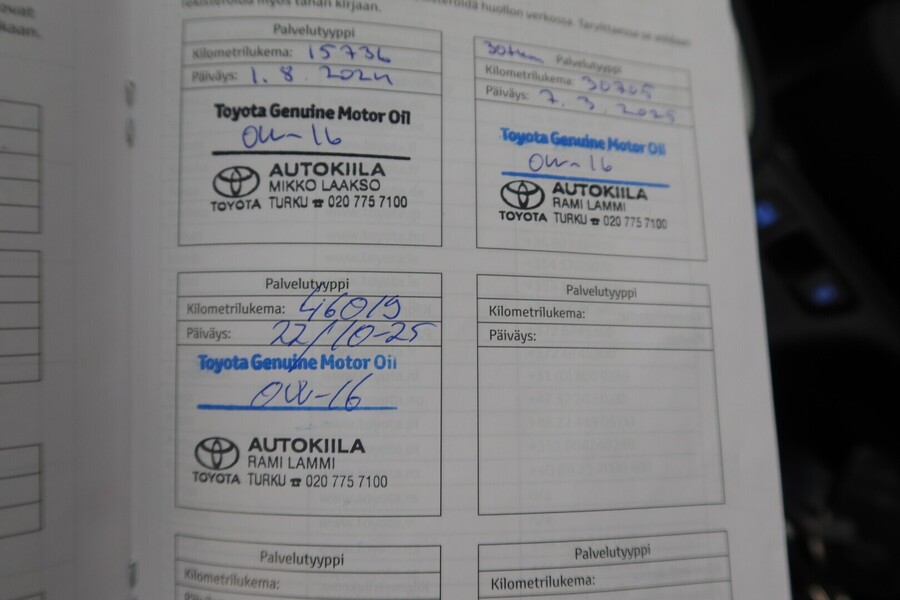 myös tähän kirjaan.
huollon verkossa.
Palvelutyyppi
Kilometrilukema: 15736
Päiväys: 1.8.2024
Toyota Genuine Motor Oil
0W-16
AUTOKIILA
MIKKO LAAKSO
TOYOTA TURKU ☎ 020 775 7100
30tkm Palvelutyyppi
Kilometrilukema: 30705
Päiväys: 7.3.2025
Toyota Genuine Motor Oil
0W-16
AUTOKIILA
RAMI LAMMI
TOYOTA TURKU ☎ 020 775 7100
Palvelutyyppi
Kilometrilukema: 46019
Päiväys: 22/10-25
Toyota Genuine Motor Oil
0W-16
AUTOKIILA
RAMI LAMMI
TOYOTA TURKU ☎ 020 775 7100
Palvelutyyppi
Kilometrilukema:
Päiväys:
Palvelutyyppi
Kilometrilukema:
Palvelutyyppi
Kilometrilukema: